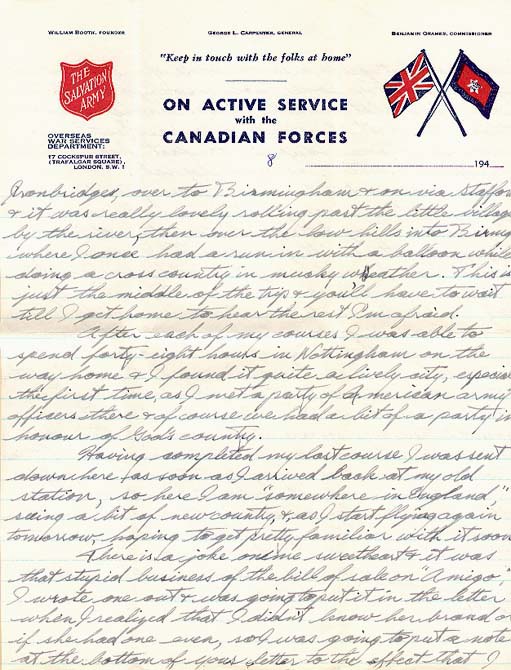 WILLIAM BOOTH, FOUNDER
GEORGE L. CARPENTER, GENERAL
BENJAMIN ORAMES, COMMISSIONER
"Keep in touch with the folks at home"
THE SALVATION ARMY
ON ACTIVE SERVICE
with the
CANADIAN FORCES
OVERSEAS
WAR SERVICES
DEPARTMENT:
17 COCKSPUR STREET,
(TRAFALGAR SQUARE),
LONDON, S.W. 1
8
194
Ironbridges, over to Birmingham & on via Staffor
& it was really lovely rolling past the little village
by the river, then over the low hills into Birmg
where I once had a run in with a balloon while
doing a cross country in musky weather. This is
just the middle of the trip & you'll have to wait
till I get home to hear the rest I'm afraid.
After each of my courses I was able to
spend forty-eight hours in Nottingham on the
way home & I found it quite a lively city, especia
the first time, as I met a party of American army
officers there & of course we had a bit of a party in
honour of God's country.
Having completed my last course I was sent
down here as soon as I arrived back at my old
station, so here I am "somewhere in England"
seeing a bit of new country, &, as I start flying again
tomorrow, hoping to get pretty familiar with it soon
There is a joke on me sweetheart & it was
that stupid business of the bill of sale on "Amigo,"
I wrote one out & was going to put it in the letter
when I realized that I didn't know her brand or
if she had one even, so I was going to put a note
at the bottom of your letter to the effect that I